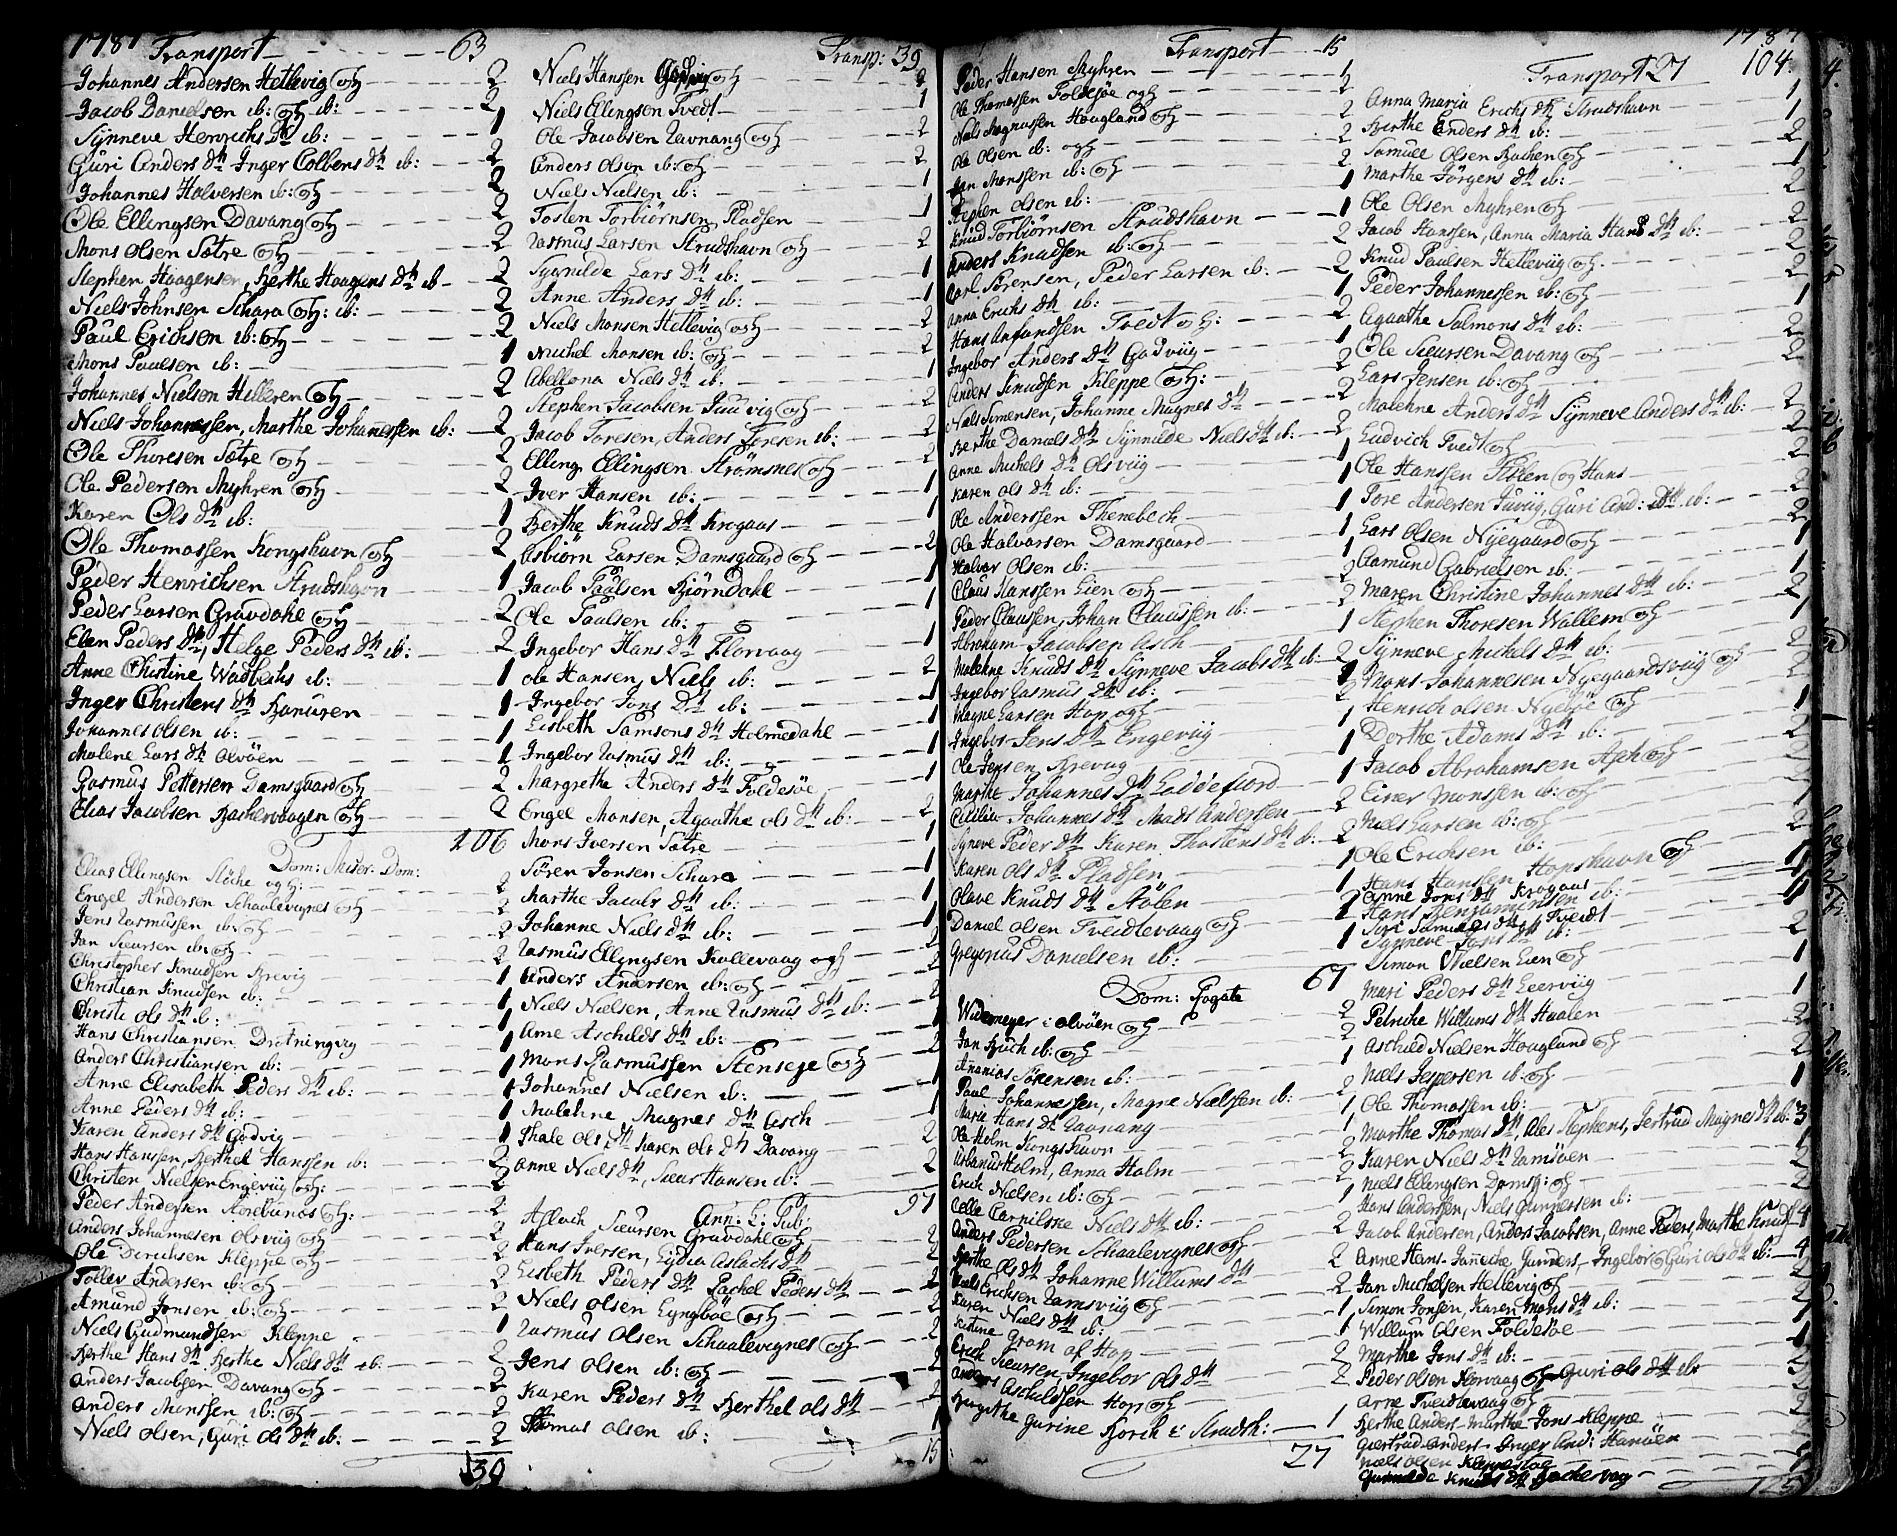 1787 Transport 63
Johannes Andersen Hetlevig og H 2
Jacob Danielsen ib: og H ib: 2
Synneve Henrichs Dtr ib: 1
Guri Anders dtr Inger Colbens dtr ib: 2
Johannes Halversen ib: og H 2
Ole Ellingsen Davang og H 2
Mons Olsen Sætre og H 2
Stephen Haagensen, Berthe Haagens dtr ib 2
Niels Johnsen Schara og H: ib: 2
Paul Erichsen ib: og H 2
Mons Paulsen ib: 1
Johannes Nielsen Helleren og H 2
Niels Johannessen, Marthe Johannessen ib: 2
Ole Thoresen Sætre og H 2
Ole Pedersen Myhren og H 2
Karen Ols dtr ib: 1
Ole Thomassen Kongshavn og H 2
Peder Henrichsen Strudshavn 1
Peder Larsen Gravdahl og H 2
Elen Peders dtr, Helge Peders dtr ib: 2
Anne Christine Wadbechs ib: 1
Inger Christens dtr Hanuren 1
Johannes Olsen ib: 1
Malene Lars dtr Alvøen 1
Rasmus Pettersen Damsgaard og H 2
Elias Jacobsen Bachervaagen og H 2
106
Dom: Miser: Dom:
Elias Ellingsen Støche og H: 2
Engel Andersen Schaalevignes og H 2
Jens Rasmussen ib: og H 2
Jan Siursen ib: og H 2
Christopher Knudsen Brevig 1
Christian Knudsen ib: 1
Christi Ols dtr ib: 1
Hans Christiansen Drotningvig 1
Anders Christiansen ib: 1
Anne Elisabeth Peders dtr ib: 1
Anne Peders dtr ib: 1
Karen Anders dtr Godvig 1
Hans Hansen, Berthel Hanssen ib: 2
Christen Nielsen Engeviig og H: 2
Peder Andersen og H: 2
Anders Johannesen Olsviig og H 2
Ole Derichsen Kleppe og H 2
Tollev Andersen ib: og H 2
Amund Jonsen ib: og H 2
Niels Gudmundsen Kleppe 1
Berthe Hans dtr Berthe Niels dtr ib: 2
Anders Jacobsen Davang og H 2
Anders Monssen ib: og H 2
Niels Olsen, Guri Ols dtr ib: 2
39
Transp: 39
Niels Hansen Godvig og H 2
Niels Ellingsen Tvedt 1
Ole Jacobsen Ravnang og H 2
Anders Olsen ib: og H 2
Niels Nielsen ib: 1
Tosten Torbiørnsen Pladsen 1
Rasmus Larsen Strudshavn og H 2
Sygnilde Lars Dtr ib: 1
Anne Anders Dtr ib: 1
Niels Monsen Hetlevig og H 2
Michel Monsen ib: og H 2
Abellona Niels dtr ib: 1
Stephen Jacobsen Juuvig og H 2
Jacob Toresen, Anders Toresen ib: 2
Elling Ellingsen Strømsnes og H 2
Iver Hansen ib: 1
Berthe Knuds Dtr Krogaas 1
Asbiørn Larsen Damsgaard og H 2
Jacob Paulsen Biørndahl 1
Ole Paulsen ib: 1
Ingebor Hans dtr Florvaag 1
Ole Hansen, Niels ib: 2
Ingebor Jons Dtr ib: 1
Lisbeth Samsons dtr Holmedahl 1
Ingebor Rasmus dtr ib: 1
Margrethe Anders Dtr Foldesøe 1
Engel Monsen, Agaathe Ols dtr ib: 2
Mons Iversen Sætre 1
Søren Jonsen Schara 1
Marthe Jacobs dtr ib: 1
Johanne Niels dtr ib: 1
Rasmus Ellingsen Kollevaag og H 2
Anders Andersen ib: og H 2
Niels Nielsen, Anne Rasmus dtr ib: 2
Anne Aschilds dtr ib: 1
Mons Rasmussen Stenseje og H 2
Johannes Nielsen ib: 1
Malehne Magnes dtr Asch 1
Skale Ols dtr Karen Ols dtr Davang 2
Anne Niels dtr, Siur Hansen ib: 2
97
Ann: E: Pub:
Aslach Siursen Gravdahl og H 2
Hans Iversen, Lydia Aslachs dtr 2
Lisbeth Peders dtr Rachel Peders dtr 2
Niels Olsen Lyngbøe og H 2
Rasmus Olsen Schaalevignes og H 2
Jens Olsen ib: og H 2
Karen Peders dtr Berthel Ols dtr 2
Thomas Olsen ib: 1
15
Transport 15
Peder Hansen Myhren 1
Ole Thomassen Foldesøe og H 2
Niels Magnussen Haagland og H 2
Ole Olsen ib: og H 2
Jan Monssen ib: og H 2
Stephen Olsen ib: 1
Knud Torbiørnsen Strudshavn 1
Anders Knudsen ib: og H 2
Carl Sørensen, Peder Larsen ib: 2
Anna Erichs dtr ib: 1
Hans Amundsen Tvedt og H: 2
Ingebor Anders dtr Godviig 1
Anders Knudsen Kleppe og H: 2
Niels Simensen, Johanne Magnes dtr 2
Berthe Daniels dtr Synnilde Niels dtr ib: 2
Anne Michels dtr Olsviig 1
Karen Ols dtr ib: 1
Ole Anderssen Thenebech 1
Ole Halvorsen Damsgaard 1
Halvor Olsen ib: 1
Claus Hanssen Lien og H 2
Peder Claussen, Johan Claussen ib: 2
Abraham Jacobsen Asch 1
Malehne Knuds dtr Synneve Jacobs dtr ib: 2
Ingebor Rasmus dtr ib: 1
Magne Larsen Hop og H 2
Ingebor Jens dtr Engeviig 1
Ole Jensen Brevig 1
Marthe Johannes dtr Laddefiord 1
Cicilia Johannes dtr Mads Anderssen 2
Synneve Peders dtr Karen Thostens dtr ib: 2
Karen Ols dtr Pladsen 1
Olave Knuds dtr Stølen 1
Daniel Olsen Tveidtevaag og H 2
Gregorius Danielsen ib: 1
67
Dom: Rogate
Widemeyer i Alvøen og H 2
Jan Buch ib: og H 2
Ananias Sørensen ib: 1
Paul Johannessen, Magne Nielssen ib: 2
Marie Hans dtr Ravnang 1
Ole Holm Kongshavn 1
Urbanus Holm, Anna Holm 2
Erich Nielsen ib: og H 2
Celle Cornilske Niels dtr ib: 1
Anders Pedersen Schaalevignes og H 2
Berthe Ols dtr Johanne Willums dtr 2
Niels Erichsen Ramsviig og H 2
Karen Niels dtr ib: 1
Kistine Grom af Hop 1
Erich Siursen, Ingebor Ols dtr 2
Anders Aschildsen Hop og H 2
Birgithe Gurine Borch i Strudsh: 1
27
1787
104.
Transport 27
Anna Maria Erichs dtr Strudshavn 1
Berthe Enders dtr ib: 1
Samuel Olsen Bachen og H 2
Marthe Jørgens dtr ib: 1
Ole Olsen Myhren og H 2
Jacob Hanssen, Anna Maria Hans dtr ib: 2
Knud Paulsen Hetleviig og H 2
Peder Johannessen ib: og H 2
Agaathe Salmons dtr ib: 1
Ole Siursen Davang og H 2
Lars Jensen ib: og H 2
Malehne Anders dtr Synneve Anders dtr ib: 2
Ludvich Tvedt og H 2
Ole Hanssen Stølen og Hans 2
Tore Andersen Juviig, Guri And: dtr ib: 2
Lars Olsen Nyegaard og H 2
Aamund Gabrielsen ib: 1
Maren Christine Johannes dtr ib: 1
Stephen Thoresen Wallem og H 2
Synneve Michels dtr ib: 1
Mons Johannesen Nyegaardsviig og H 2
Henrich Olsen Nyebøe og H 2
Dorthe Adams dtr ib: 1
Jacob Abrahamsen Asch og H 2
Einer Monssen ib: og H 2
Niels Larsen ib: og H 2
Ole Erichsen ib: 1
Hans Hanssen Hopshavn og H
Anne Jons dtr Krogaas 1
Hans Benjaminsen ib: 1
Siri Samuels dtr Tveidt
Synneve Jons dtr ib:
Simon Nielsen Lien og H 2
Mari Peders dtr Leerviig 1
Petriche Willums dtr Haalen 1
Aschild Nielsen Haagland og H 2
Niels Jespersen ib: og H 2
Ole Thomassen ib: 1
Marthe Thomas dtr, Oles Stephens, Gertrud Magnes dtr ib: 3
Karen Niels dtr Ramsøen 1
Niels Ellingsen Damsg: og H 2
Hans Anderssen, Niels Gunnersen ib: 2
Jacob Andersen, Anders Jacobsen, Anne Peders, Marthe Knuds 4
Anne Hans- Janniche Gunders, Ingebor og Guri Ols dtr ib: 4
Jan Michelsen Hellevig og H 2
Simon Jonsen, Karen Mons dtr ib: 2
Willum Olsen Foldesøe 1
Marthe Jons dtr ib: 1
Peder Olsen Florvaag og H Guri Ols dtr ib:
Arne Tveidtevaag og H 2
Berthe Anders- Marthe Jons- Kleppe 2
Giertrud Anders- Inger And: Hanøen 2
Niels Olsen Kleppestøe
Gunnilde Knuds dtr Bachervog
125